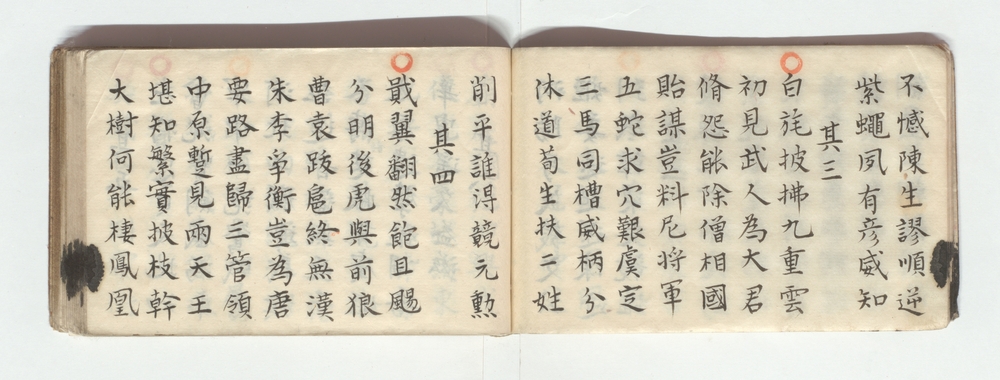 不憾陳生謬順逆
紫蠅夙有彦威知
其三
白旄披拂九重雲
初見武人為大君
脩怨能除僧相國
貽謀豈料尼将軍
五蛇求穴艱虞定
三馬同槽威柄分
休道荀生扶二姓
削平誰得競元勲
其四
戢翼翻然飽且颺
分明後虎與前狼
曹袁跋扈終無漢
朱李爭衡豈為唐
要路盡歸三管領
中原蹔見兩天王
堪知繁實披枝幹
大樹何能棲鳳凰